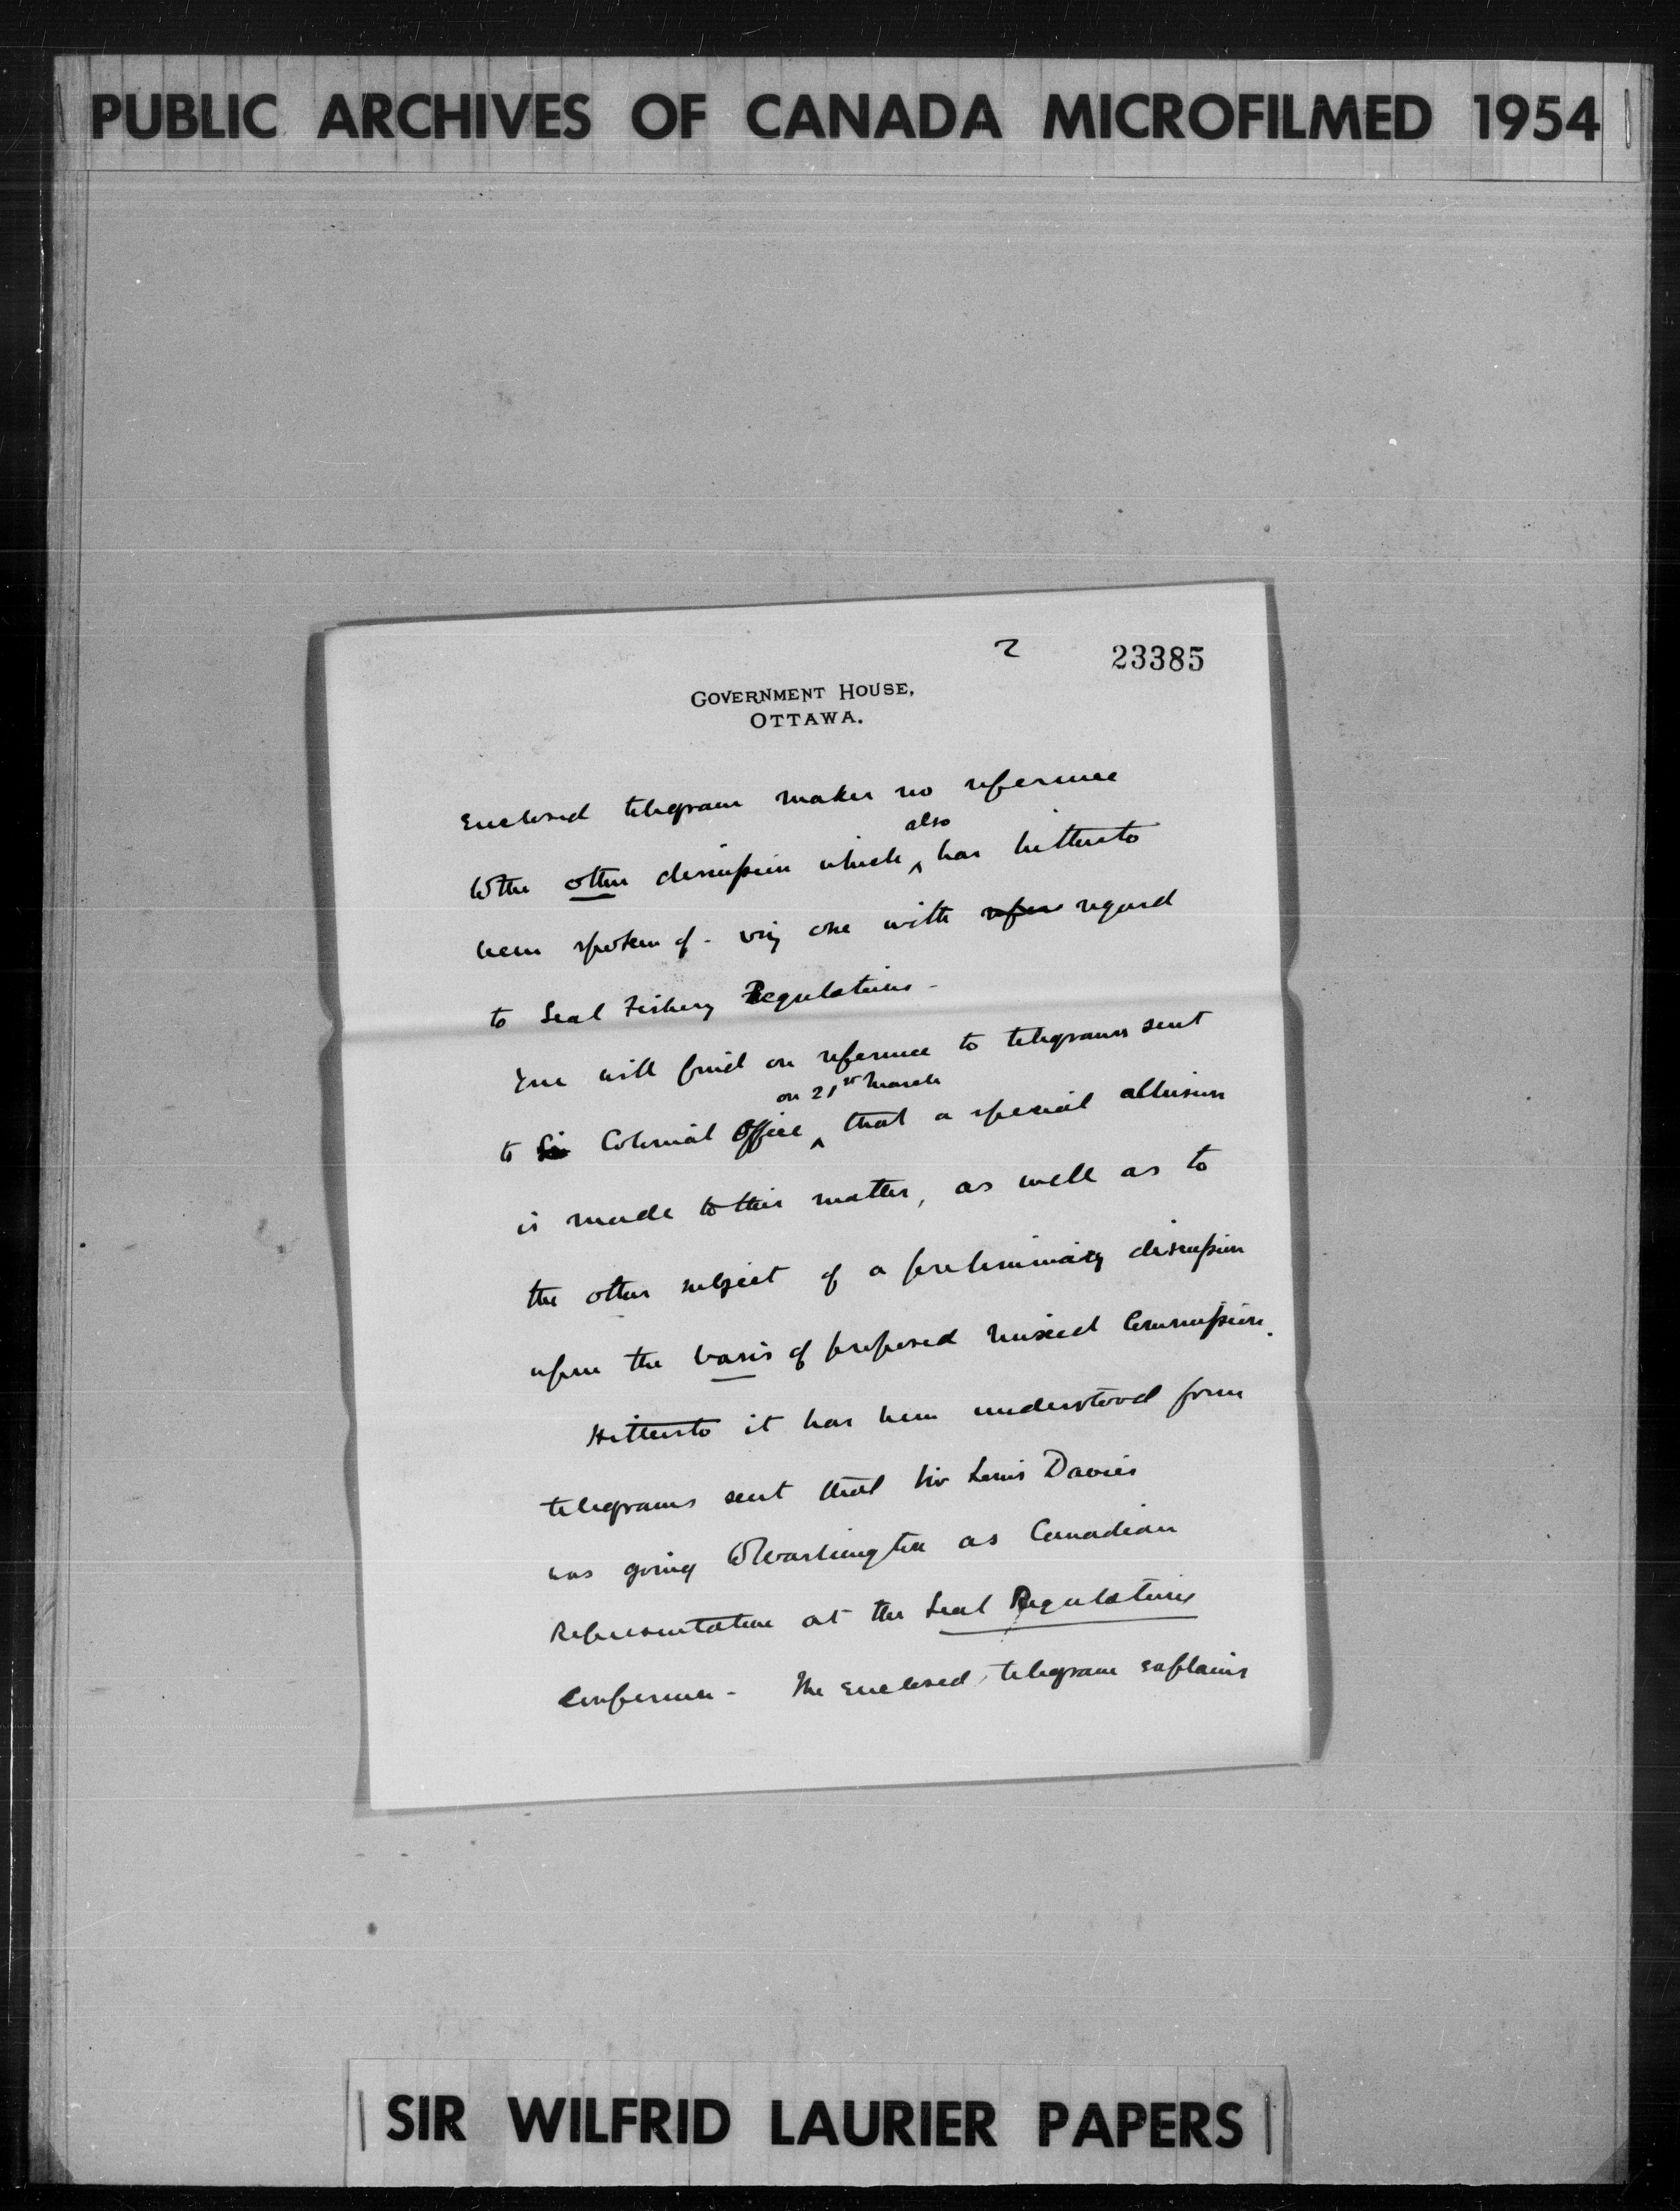 PUBLIC ARCHIVES OF CANADA MICROFILMED 1954
2 23385
GOVERNMENT HOUSE,
OTTAWA.
Enclosed telegram makes no reference
also
to the other discussion which ^ has hitherto
been spoken of - viz one with refer regard
to Seal Fishery Regulations -
You will find on reference to telegrams sent
on 21st March
to Sir Colonial Office ^ that a special allusion
is made to this matter, as well as to
the other subject of a preliminary discussion
upon the basis of proposed mixed Commission.
Hitherto it has been understood from
telegrams sent that Sir Louis Davies
was going to Washington as Canadian
Representative at the Seal Regulations
Conference - The enclosed telegram explains
SIR WILFRID LAURIER PAPERS